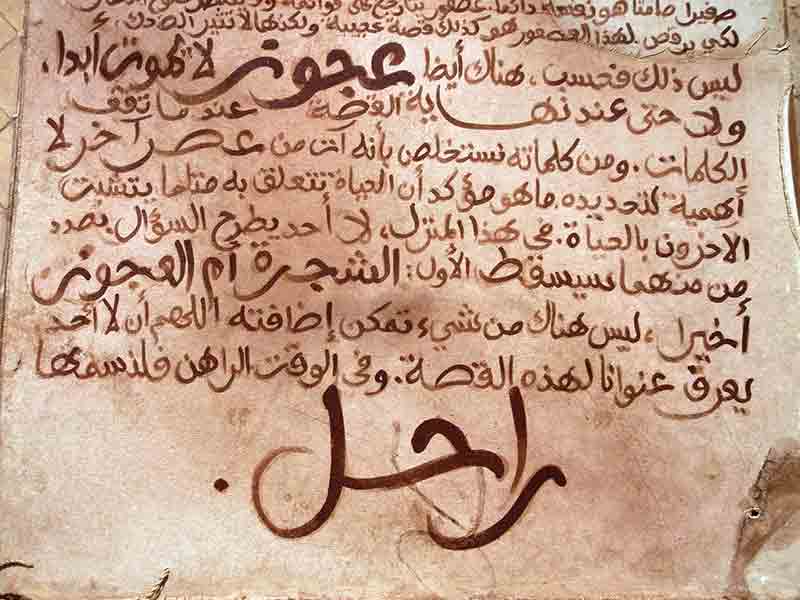 صفيرا صامتا هو نفسه دائما. عصفور يتأرجح على قوائمه
لكي يرقص. لهذا العصفور هو كذلك قصة عجيبة ولكنها لا تثير
ليس ذلك فحسب، هناك أيضا عجوز لا تموت أبدا.
ولا حتى عند نهاية القصة عند ما تقف
الكلمات. ومن كلماته نستخلص بأنه آت من عصر آخر لا
أهمية لتحديده. ما هو مؤكد أن الحياة تتعلق به مثلما يتشبث
الآخرون بالحياة. في هذا المنزل، لا أحد يطرح السؤال بصدد
من منهما سيسقط الأول: الشجرة أم العجوز
أخيرا، ليس هناك من شيء تمكن إضافته اللهم أن لا أحد
يعرف عنوانا لهذه القصة. وفي الوقت الراهن فلنسمها
راحل.